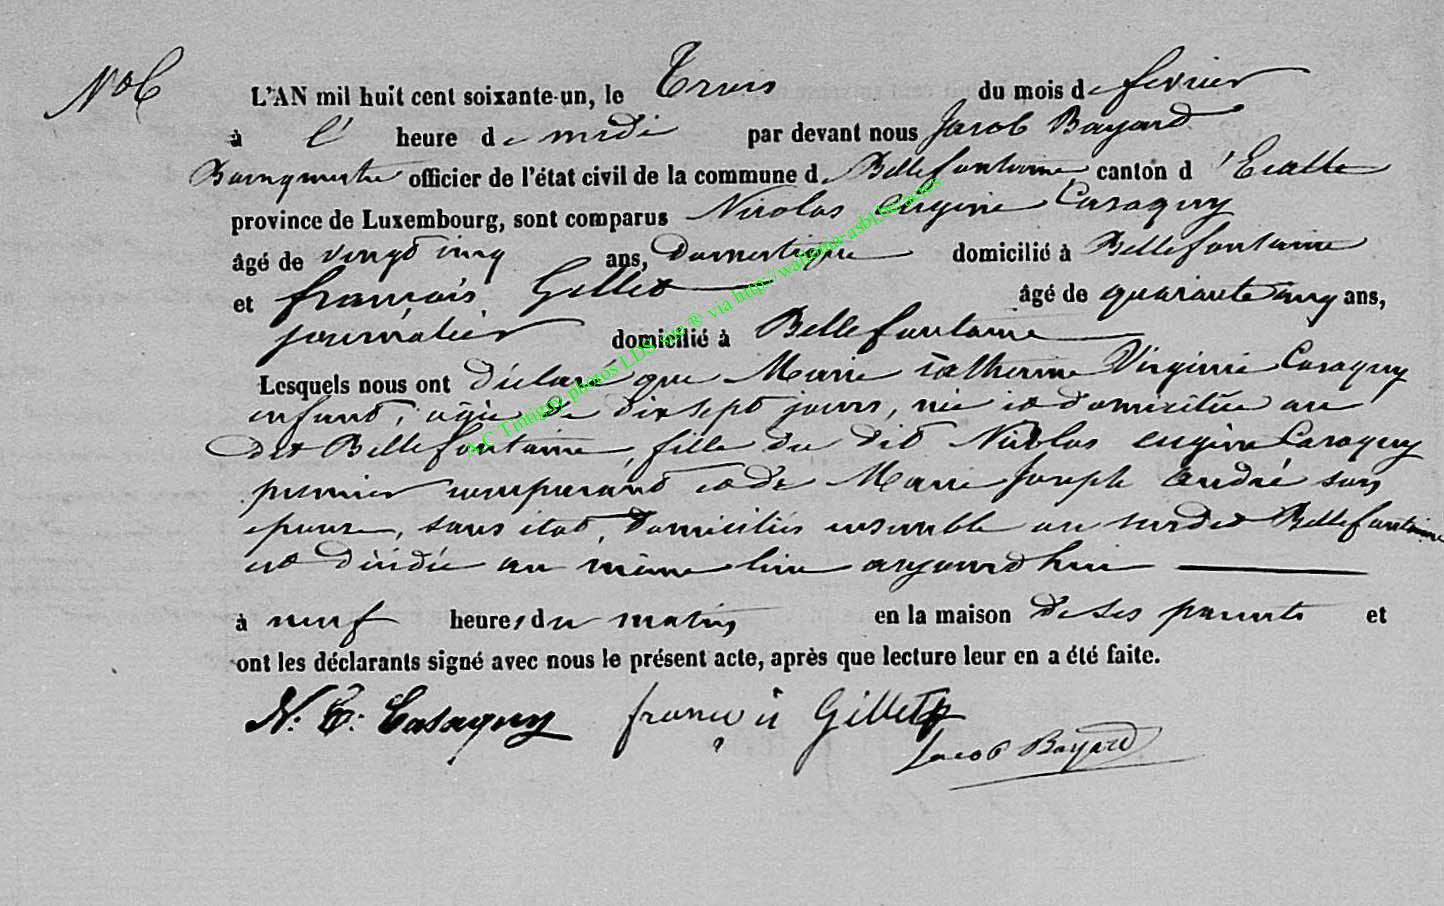 N° 6
L'AN mil huit cent soixante-un, le Trois du mois de fevrier
à l' heure de midi par devant nous Jacob Bayard
Bourgmestre officier de l'état civil de la commune de Bellefontaine, canton d'Etalle
province de Luxembourg, sont comparus Nicolas eugène Casaquy
âgé de vingt cinq ans, Domestique domicilié à Bellefontaine
et françois Gillet âgé de quarante cinq ans,
journalier domicilié à Bellefontaine
Lesquels nous ont déclaré que Marie Catherine Virginie Casaquy
enfant, agée de dix sept jours, née et domiciliée au
dit Bellefontaine, fille du dit Nicolas eugène Casaquy
premier comparant et de Marie Joseph André son
epouse, sans état, Domiciliés ensemble au susdit Bellefontaine
est décédée au même lieu aujourd'hui
à neuf heures du matin en la maison de ses parents et
ont les déclarants signé avec nous le présent acte, après que lecture leur en a été faite.
N. E. Casaquy françois Gillet
Jacob Bayard
A.C Tintigny photos LDS ® via http://wallonia-asbl.be/actes